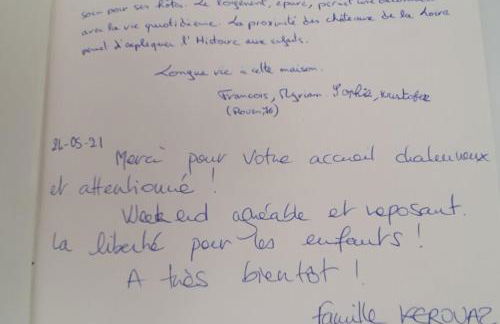 soin pour ses hôtes. Le logement, épuré, permet une
avec la vie quotidienne. La proximité des châteaux de la Loire
permet d'expliquer l'Histoire aux enfants.
Longue vie à cette maison.
François, Myriam, Sophie, Kristofer
(Rouen, 76)
24-05-21
Merci pour votre accueil chaleureux
et attentionné !
Week end agréable et reposant.
la liberté pour les enfants !
A très bientôt !
famille KEROUAZ